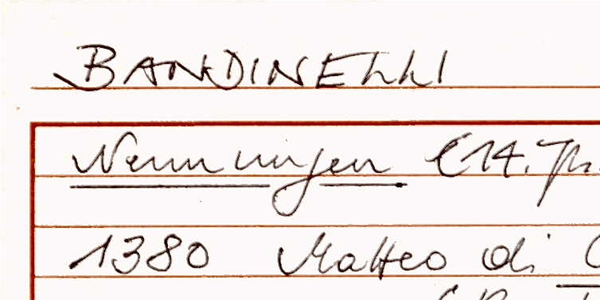 BANDINELLI
Nennungen (14. Jh.
1380 Matteo di